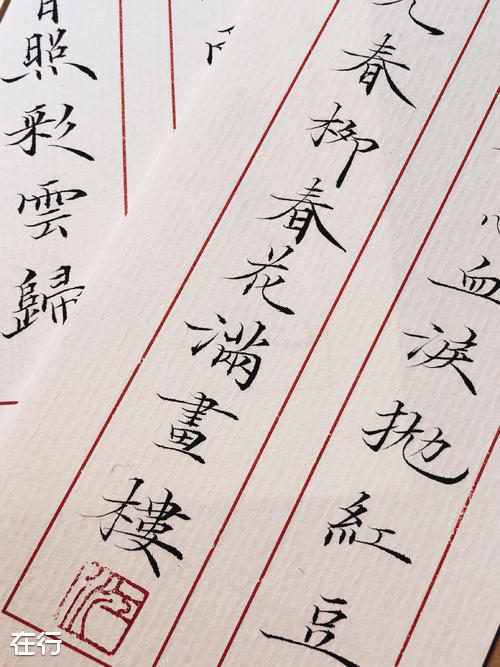 血淚拋紅豆
春柳春花滿畫樓
照彩雲歸
在行